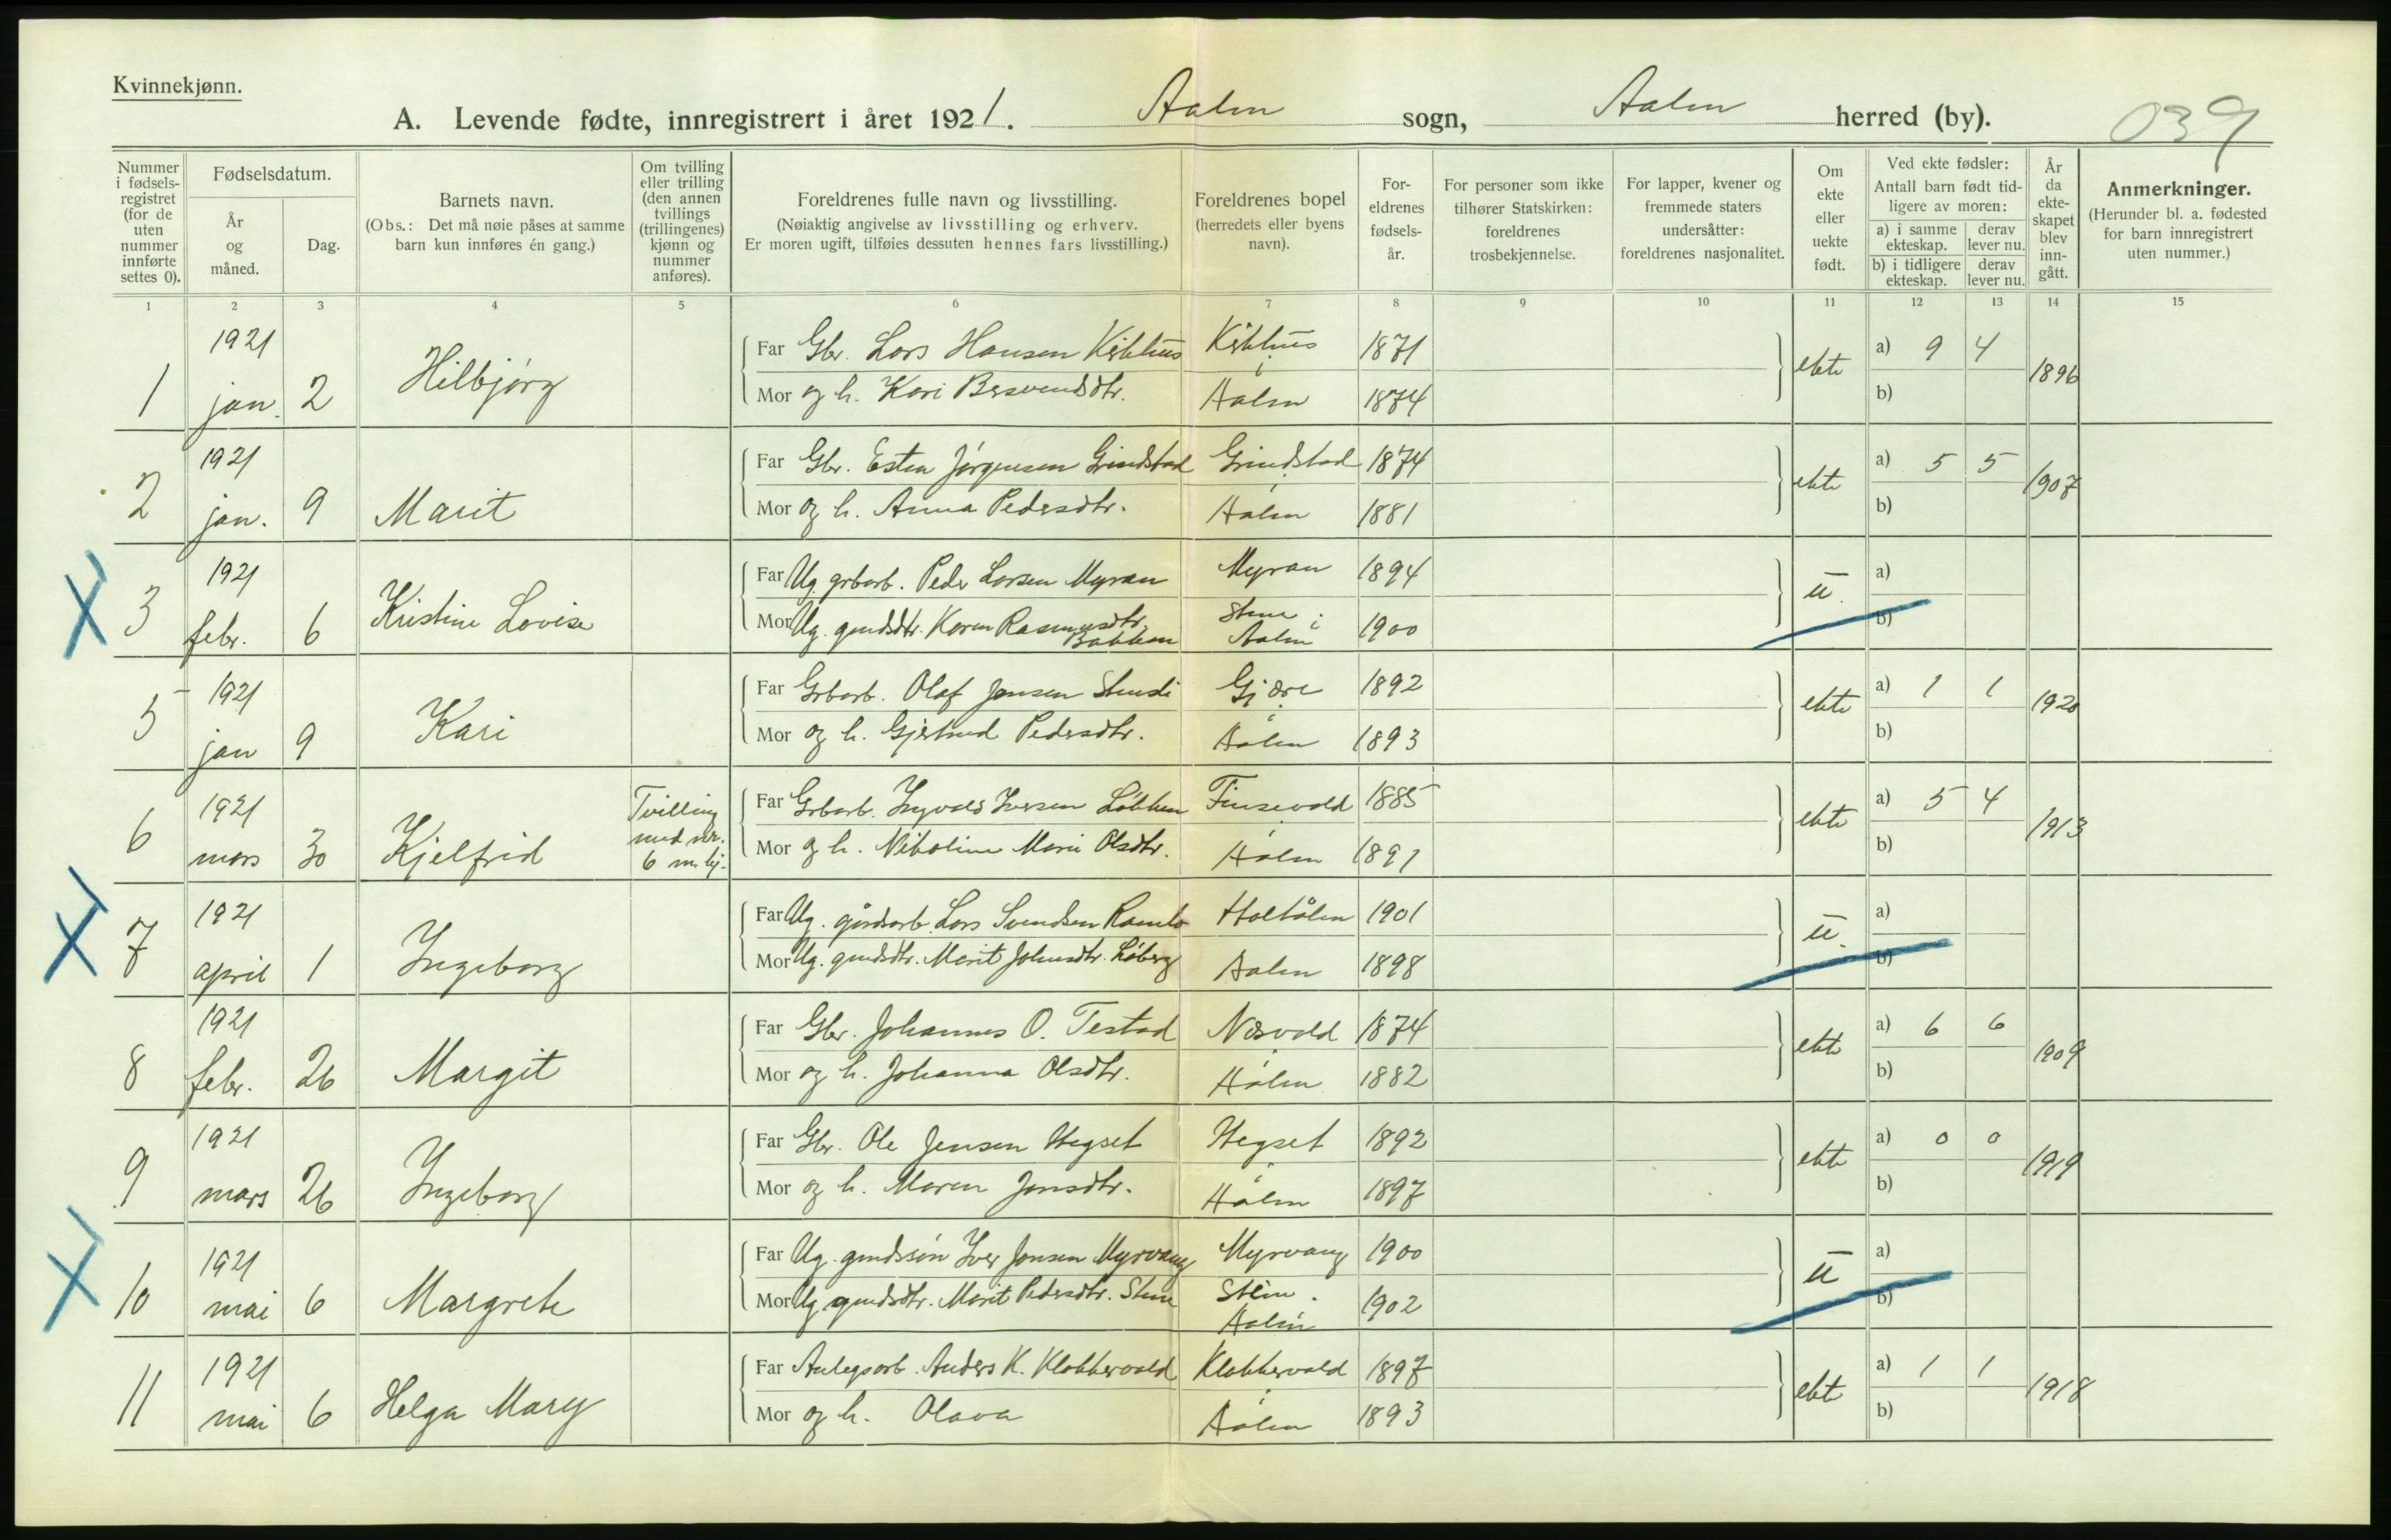 Kvinnekjønn.
A. Levende fødte, innregistrert i året 1921. Aalen sogn, Aalen herred (by). 039
Nummer i fødsels-registret (for de uten nummer innførte settes 0).
Fødselsdatum.
År og måned.
Dag.
Barnets navn.
(Obs.: Det må nøie påses at samme barn kun innføres én gang.)
Om tvilling eller trilling (den annen tvillings (trillingenes) kjønn og nummer anføres).
Foreldrenes fulle navn og livsstilling.
(Nøiaktig angivelse av livsstilling og erhverv.
Er moren ugift, tilføies dessuten hennes fars livsstilling.)
Foreldrenes bopel (herredets eller byens navn).
For-eldrenes fødsels-år.
For personer som ikke tilhører Statskirken: foreldrenes trosbekjennelse.
For lapper, kvener og fremmede staters undersåtter: foreldrenes nasjonalitet.
Om ekte eller uekte født.
Ved ekte fødsler:
Antall barn født tid-ligere av moren:
a) i samme ekteskap. derav lever nu.
b) i tidligere ekteskap. derav lever nu.
År da ekte-skapet blev inn-gått.
Anmerkninger.
(Herunder bl. a. fødested for barn innregistrert uten nummer.)
1 2 3 4 5 6 7 8 9 10 11 12 13 14 15
1 1921 jan. 2 Hilbjørg
Far Gbr. Lars Hansen Kirkhus Kirkhus 1871
Mor og h. Kari Besvendsdtr. Aalen 1874
ekte a) 9 4 b) 1896
2 1921 jan. 9 Marit
Far Gbr. Esten Jørgensen Grindstad Grindstad 1874
Mor og h. Anna Pedersdtr. Aalen 1881
ekte a) 5 5 b) 1907
3 1921 febr. 6 Kristine Lovise
Far Ug. grbarb. Peder Larsen Myran Myran 1894
Mor Ug. gmdsdtr. Karen Rasmusdtr. Bakken Stene i Aalen 1900
u. a) b)
5 1921 jan 9 Kari
Far Grbarb. Olaf Jensen Gjøre 1892
Mor og h. Gjertrud Pedersdtr. Aalen 1893
ekte a) 1 1 b) 1920
6 1921 mars 30 Kjelfrid
Tvilling med nr. 6 m. kj.
Far Grbarb. Ingvald Iversen Løkken Finsevold 1885
Mor og h. Nikoline Marie Olsdtr. Aalen 1891
ekte a) 5 4 b) 1913
7 1921 april 1 Ingeborg
Far Ug. gårdsarb. Lars Svendsen Ramlo Holtålen 1901
Mor Ug. gmdsdtr. Marit Johnsdtr. Løberg Aalen 1898
u. a) b)
8 1921 febr. 26 Margit
Far Gbr. Johannes O. Testad Næsvold 1874
Mor og h. Johanna Olsdtr. Aalen 1882
ekte a) 6 6 b) 1909
9 1921 mars 26 Ingeborg
Far Gbr. Ole Jensen Hegset Hegset 1892
Mor og h. Maren Jonsdtr. Aalen 1897
ekte a) 0 0 b) 1919
10 1921 mai 6 Margrete
Far Ug. gmdssøn Iver Jonsen Myrvang Myrvang 1900
Mor Ug. gmdsdtr. Marit Pedersdtr. Stene Stene. Aalen 1902
u a) b)
11 1921 mai 6 Helga Mary
Far Anlegsarb. Anders K. Klokkervold Klokkervold 1897
Mor og h. Olava Aalen 1893
ekte a) 1 1 b) 1918